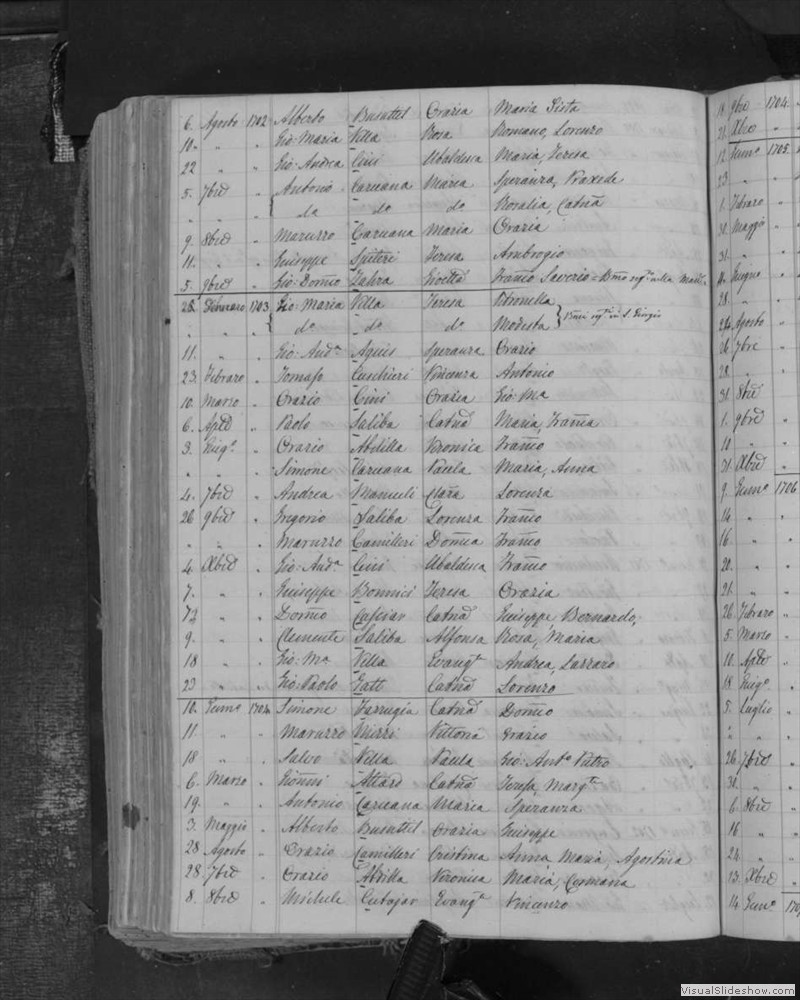 6. Agosto 1702 Alberto Busuttil Orazia Maria Sista
10. " " Gio: Maria Villa Rosa Romano, Lorenzo
22 " " Gio: Andrea Cini Ubaldesca Maria, Teresa
5. 7bre " Antonio Caruana Maria Speranza, Praxede
" " " do do do Rosalia, Catna
9. 8bre " Maruzzo Caruana Maria Orazia
11. " " Giuseppe Spiteri Teresa Ambrogio
5. 9bre " Gio: Domco Zahra Franco Saverio
28. Gennaro 1703 Gio: Maria Villa Teresa Petronella
" " " do do do Modesta
11. " " Gio: Anda Aquis Speranza Orazio
23. Febraro " Tomaso Cuschieri Vincenza Antonio
10. Marzo " Orazio Cini Orazia Gio: Ma
6. Aple " Paolo Saliba Catna Maria, Franca
3. Giugo " Orazio Abdilla Veronica Franco
" " " Simone Caruana Paula Maria, Anna
4. 7bre " Andrea Mamuli Clara Lorenza
26 9bre " Gregorio Saliba Lorenza Franco
" " " Maruzzo Camilleri Domca Franco
4. Xbre " Gio: Anda Cini Ubaldesca Franco
7. " " Giuseppe Bonnici Teresa Orazia
" " Domco Cassar Catna Giuseppe Bernardo,
9. " " Clemente Saliba Alfonsa Rosa, Maria
18 " " Gio: Ma Villa Evangta Andrea, Lazzaro
23 " " Gio: Paolo Gatt Catna Lorenzo
10. Genno 1704 Simone Farrugia Catna Domco
11. " " Maruzzo Mizzi Vittoria Orazio
18 " " Salvo Villa Paula Gio: Anto Pietro
6. Marzo " Gionni Attard Catna Teresa, Margta
19. " " Antonio Caruana Maria Speranza
3. Maggio " Alberto Busuttil Orazia Giuseppe
28 Agosto " Orazio Camilleri Cristina Anna Maria, Agostina
28. 7bre " Orazio Abdilla Veronica Maria, Germana
8. 8bre " Michele Cutajar Evangta Vincenzo
19. 9bre 1704.
21. Xbre "
12. Genno 1705.
23 "
1. Febraro "
31. Maggio "
31. "
11. Giugno "
28. "
Agosto "
26. 7bre "
28. "
31. 8bre "
1. 9bre "
10 "
31. Xbre "
9. Genno 1706
14. "
16. "
20. "
21. "
26. Febraro "
5. Marzo "
10. Aple "
18. Giugo "
5. Luglio "
" "
26. 7bre "
31. "
6. 8bre "
16 "
24. "
13. Xbre "
14. Genno
VisualSlideshow.com